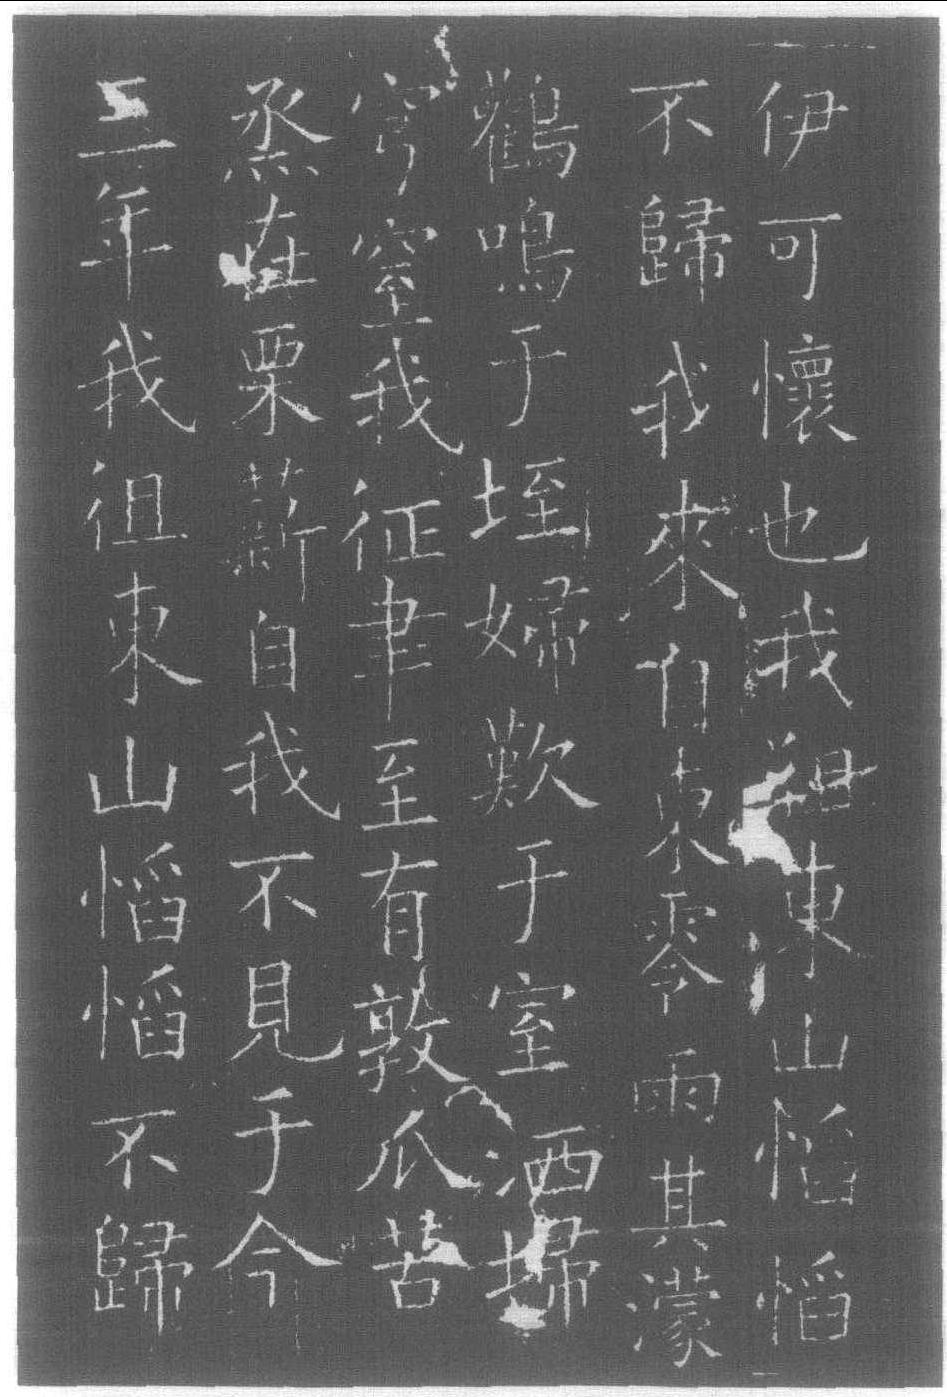 伊可懷也我徂東山慆慆
不歸我來自東零雨其濛
鸛鳴于垤婦歎于室洒埽
穹窒我征聿至有敦瓜苦
烝在栗薪自我不見于今
三年我徂東山慆慆不歸